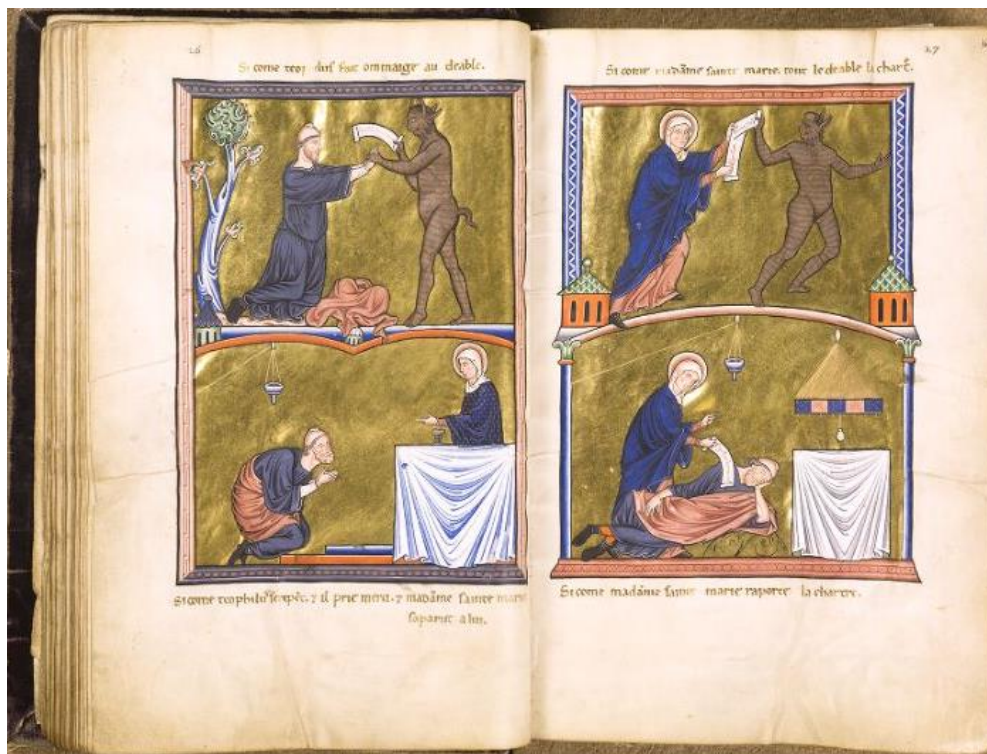 26
Si come teophilus fait ommaige au deable.
Si come teophilus se repēt. ⁊ il prie merci. ⁊ madāme sainte marie
saparut a lui.
27
Si come madāme sainte marie. tout le deable la chartē.
Si come madāme sainte marie raporte la chartre.